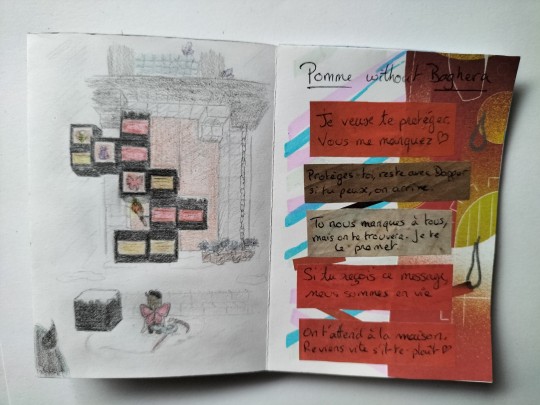 Pomme without Baghera
Je veux te protéger,
Vous me manquez ♡
Protèges-toi, reste avec
si tu peux, on arrive.
Tu nous manques à tous,
mais on te trouvera. Je te
le promet.
Si tu reçois ce message,
nous sommes en vie
On t'attend à la maison.
Reviens vite s'il-te-plaît ♡